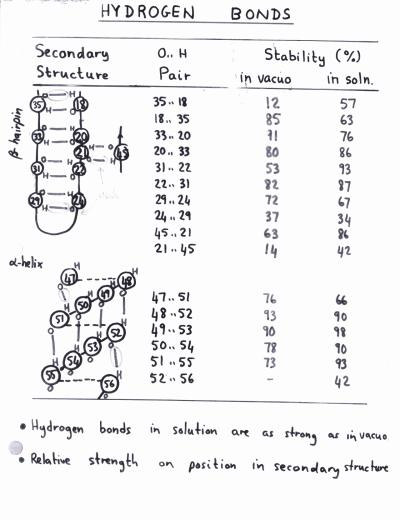 HYDROGEN BONDS
Secondary Structure O..H Pair Stability (%)
in vacuo in soln.
β hairpin
35..18 12 57
18..35 85 63
33..20 71 76
20..33 80 86
31..22 53 93
22..31 82 87
29..24 72 67
24..29 37 34
45..21 63 86
21..45 14 42
α-helix
47..51 76 66
48..52 93 90
49..53 90 98
50..54 78 90
51..55 73 93
52..56 - 42
• Hydrogen bonds in solution are as strong as in vacuo
• Relative strength on position in secondary structure